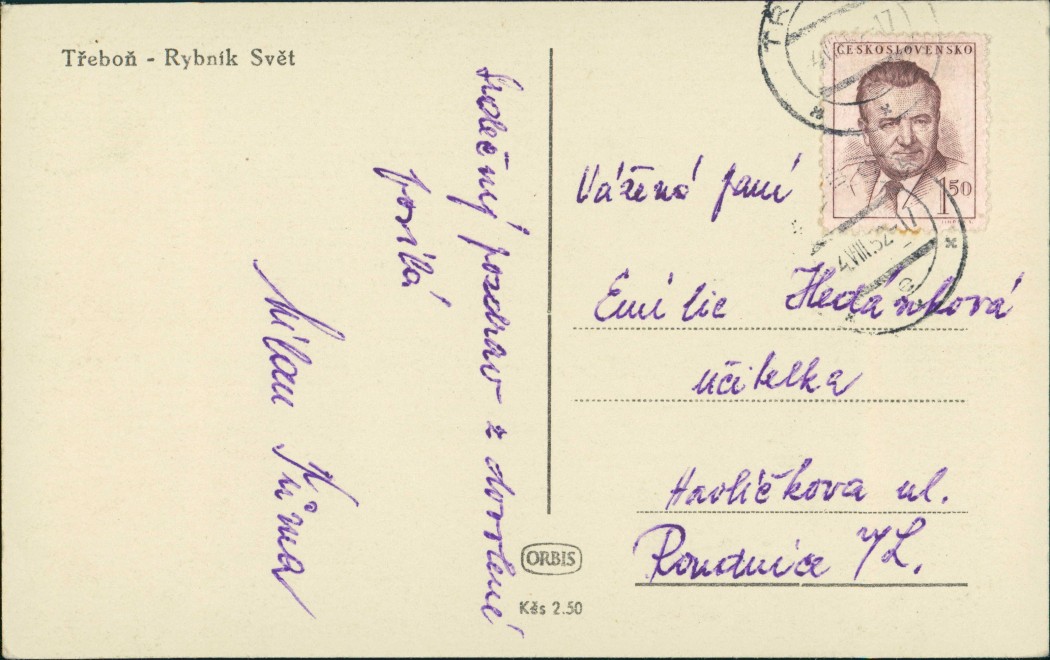 Třeboň - Rybník Svět
Srdečný pozdrav z dovolené
posílá
Milan Kůrka
ČESKOSLOVENSKO
1 50
4.VIII.52-17
Vážená paní
Emilie
učitelka
Havlíčkova ul.
Roudnice /L.
ORBIS
Kčs 2.50